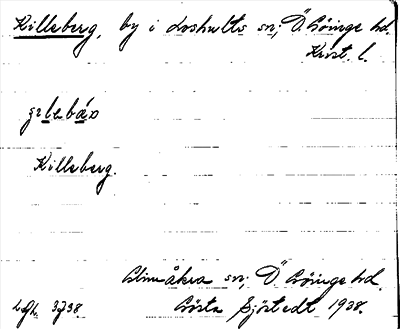 Killeberg, by i Loshults sn; Ö. Göinge hd.
Krist. l.
Killeberg.
Glimåkra sn; Ö. Göinge hd.
Gösta Sjöstedt 1938.